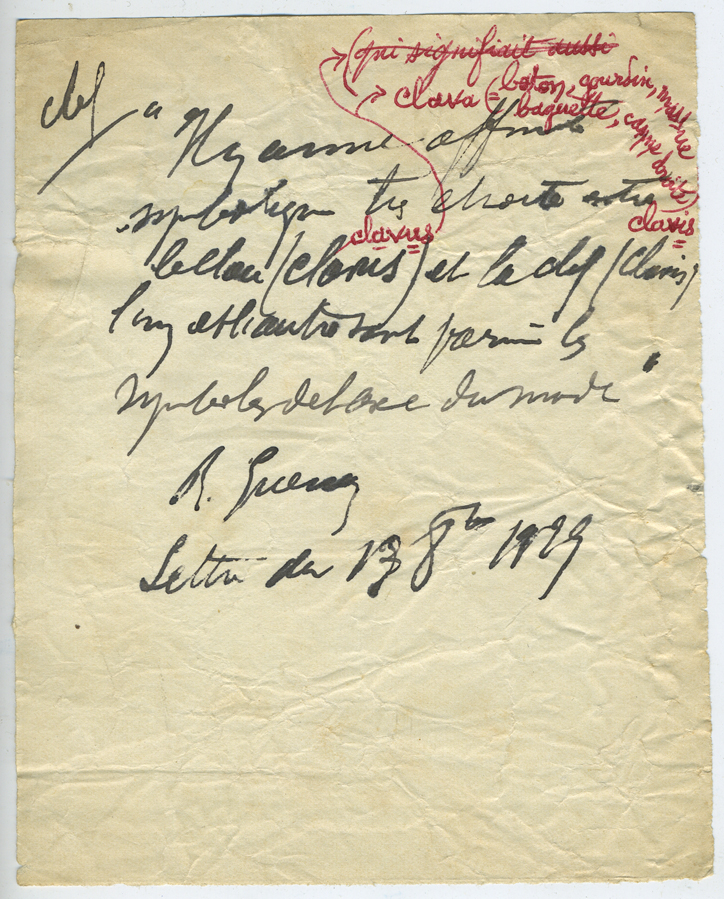 (qui signifiait aussi
clava (= baton, gourdin, massue
baguette,
clef
" Il y a une affinité
symbolique très étroite entre
clavus
clavis
le clou (clavus) et la clef (clavis)
l'un et l'autre sont parmi les
symboles de l'axe du monde "
R. Guenon
Lettre du 13 8bre 1929